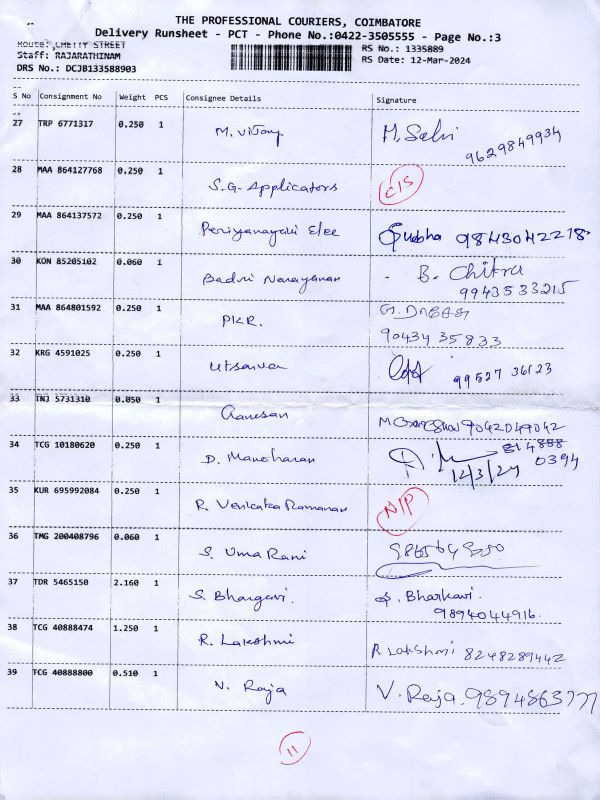 THE PROFESSIONAL COURIERS, COIMBATORE
Delivery Runsheet - PCT - Phone No.:0422-3505555 - Page No.:3
Route: ,CHETTY STREET RS No.: 1335889
Staff: RAJARATHINAM RS Date: 12-Mar-2024
DRS No.: DCJB133588903
S No Consignment No Weight PCS Consignee Details Signature
27 TRP 6771317 0.250 1 M. Vijay M. Selvi
9629849934
28 MAA 864127768 0.250 1 S.G. Applicators C/S
29 MAA 864137572 0.250 1 Periyanayaki Elec Subha 9843042218
30 KON 85205102 0.060 1 Badri Narayanan B. Chitra
9943533215
31 MAA 864801592 0.250 1 PKR. G. DINESH
90434 35833
32 KRG 4591025 0.250 1 Utsarva 99527 36123
33 TNJ 5731310 0.050 1 Ganesan 9042049042
34 TCG 10180620 0.250 1 D. Manoharan 0394
12/3/24
35 KUR 695992084 0.250 1 R. Venkata Ramanan N/P
36 TMG 200408796 0.060 1 S. Uma Rani
37 TDR 5465150 2.160 1 S. Bhargavi. S. Bharkavi.
9894044916.
38 TCG 40888474 1.250 1 R. Lakshmi R Lakshmi 8248289442
39 TCG 40888800 0.510 1 V. Raja V. Raja. 9894863777
11